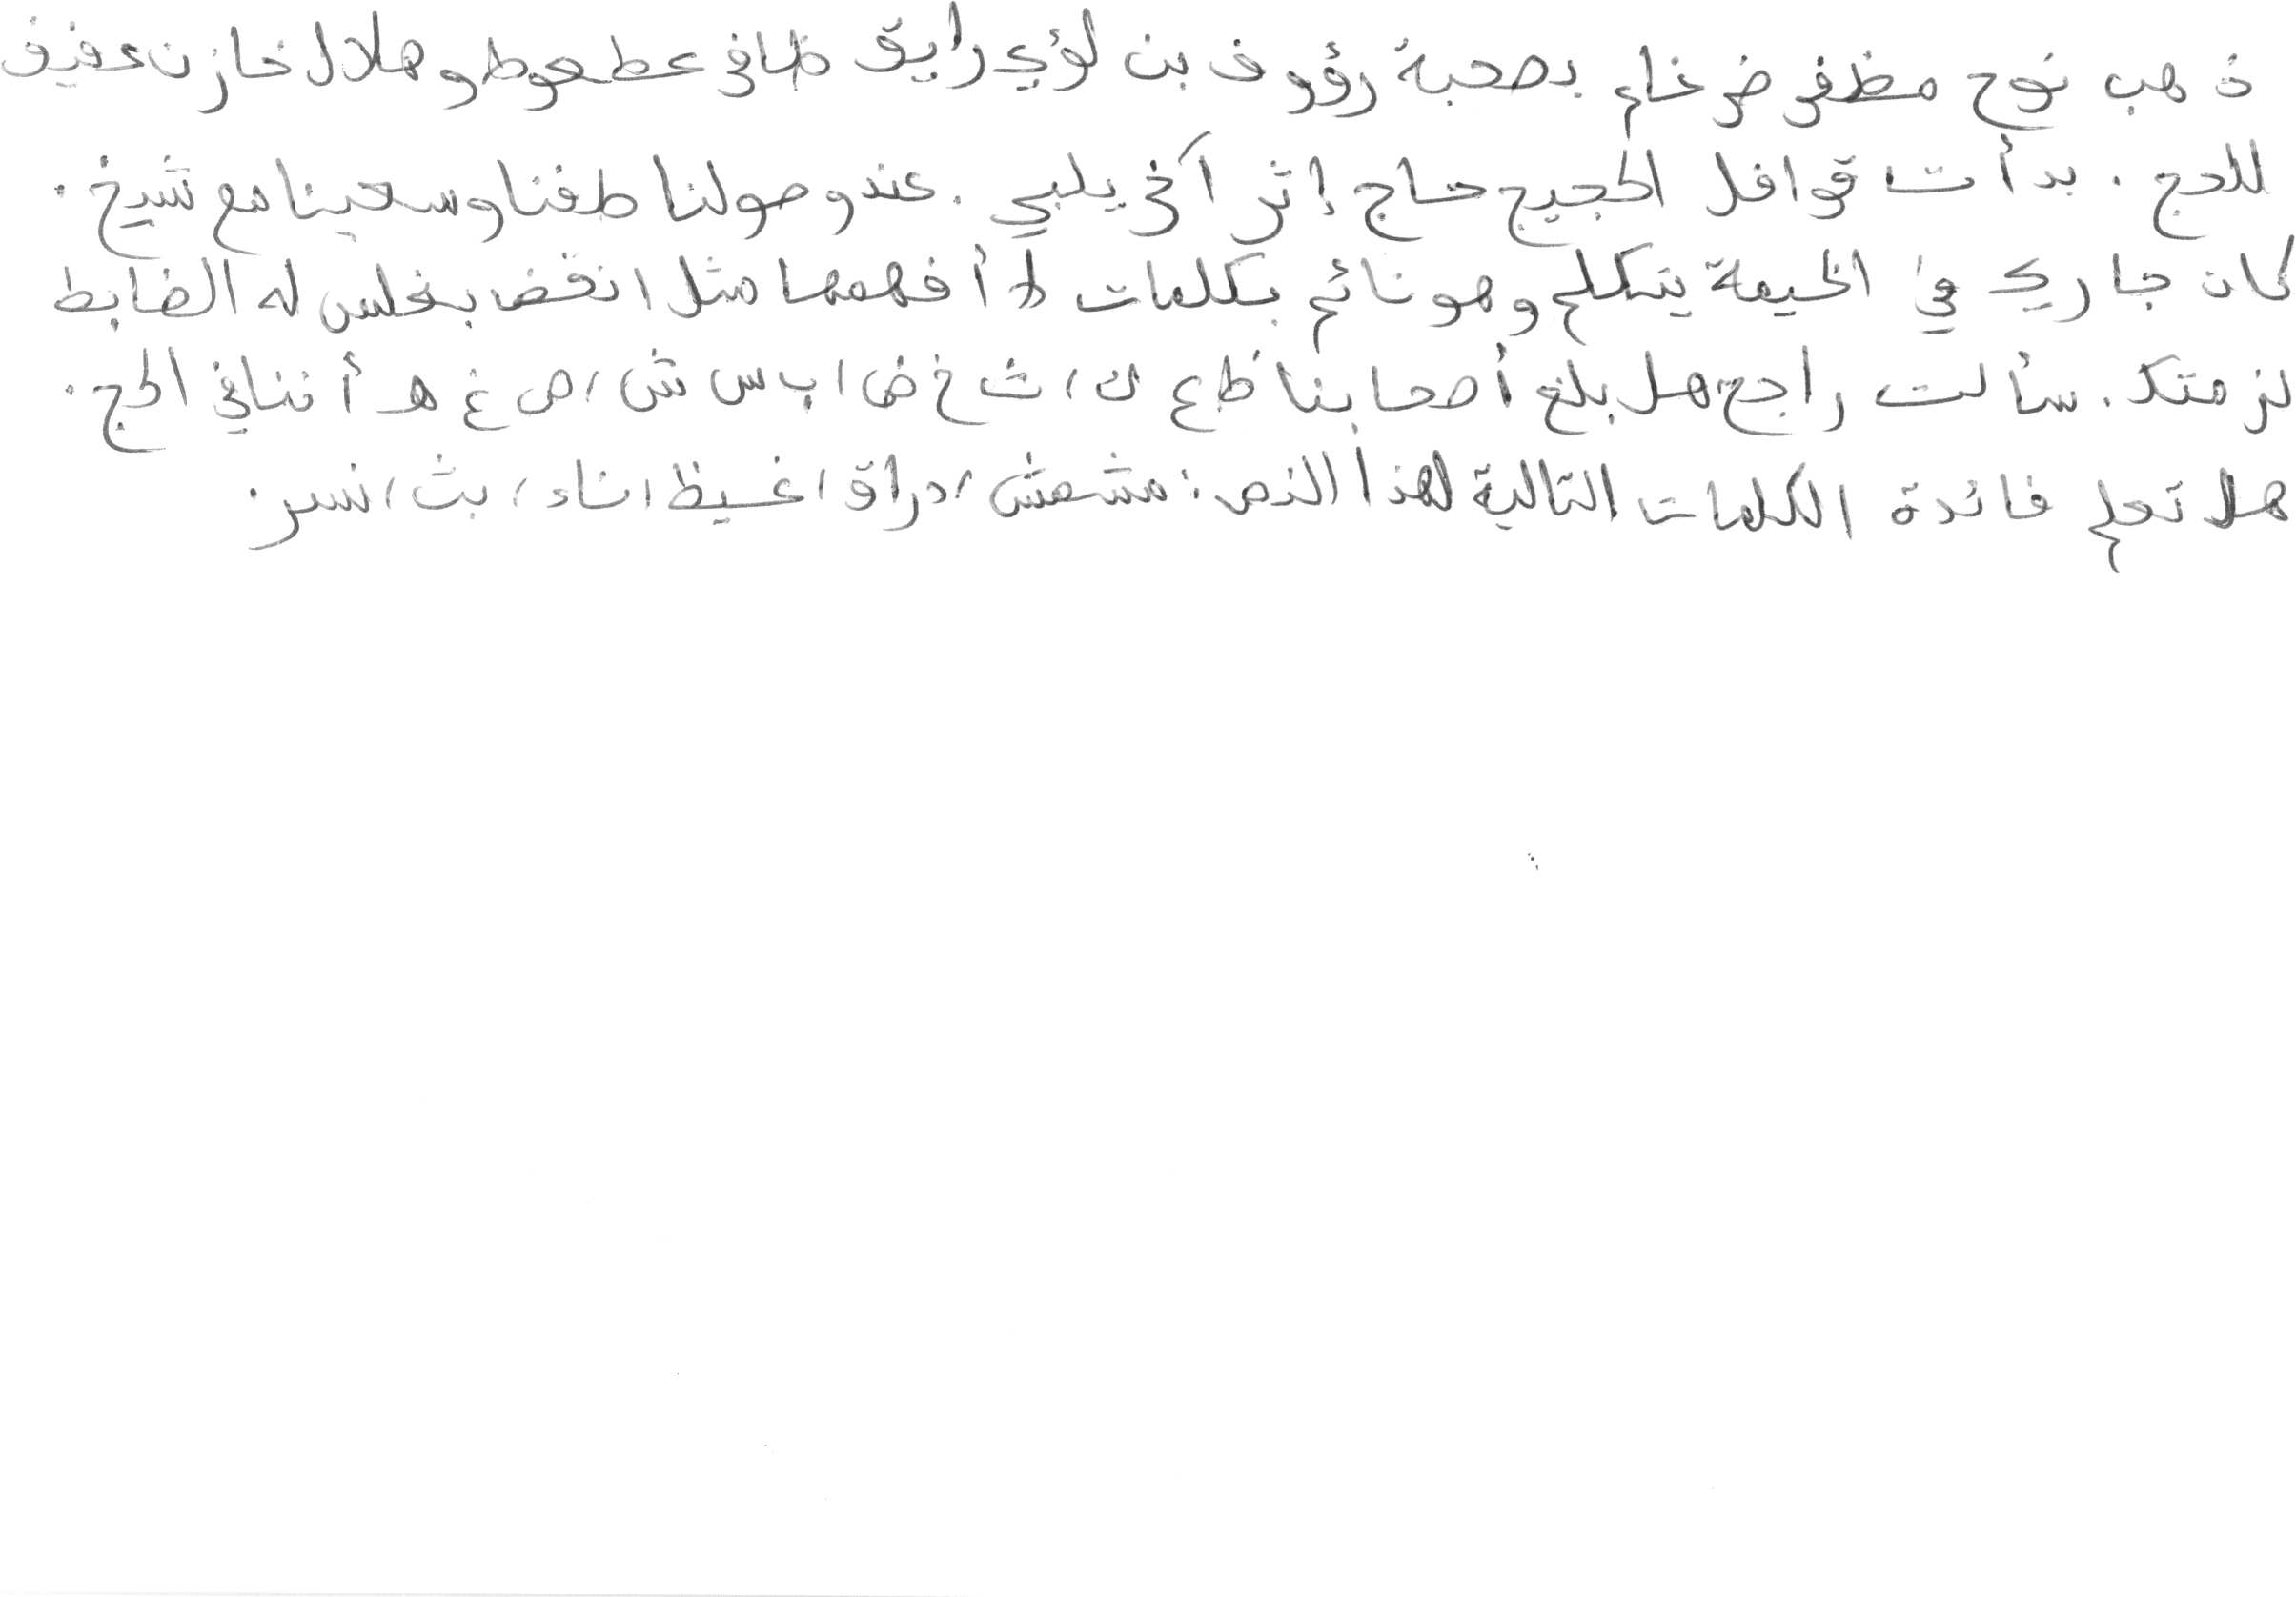 ذهب نوح مظفر ضرغام بصحبة رؤوف بن لؤي رايق ظافر عطعوط و هلال خازن عفيف
للحج . بدأت قوافل الحجيج حاج إثر آخر يلبي . عند وصولنا طفنا وسعينا مع شيخ .
كان جاري في الخيمة يتكلم وهو نائم بكلمات لا أفهمها مثل انقض بغلس له الضابط
لزمتك . سألت راجح هل بلغ أصحابنا ظ ع ك ، ث خ ض ، ب س ش ، ص غ هـ أثناء الحج .
هل تعلم فائدة الكلمات التالية لهذا النص : مشمش ، دراق ، غيظ ، ناء ، بث ، نسر .